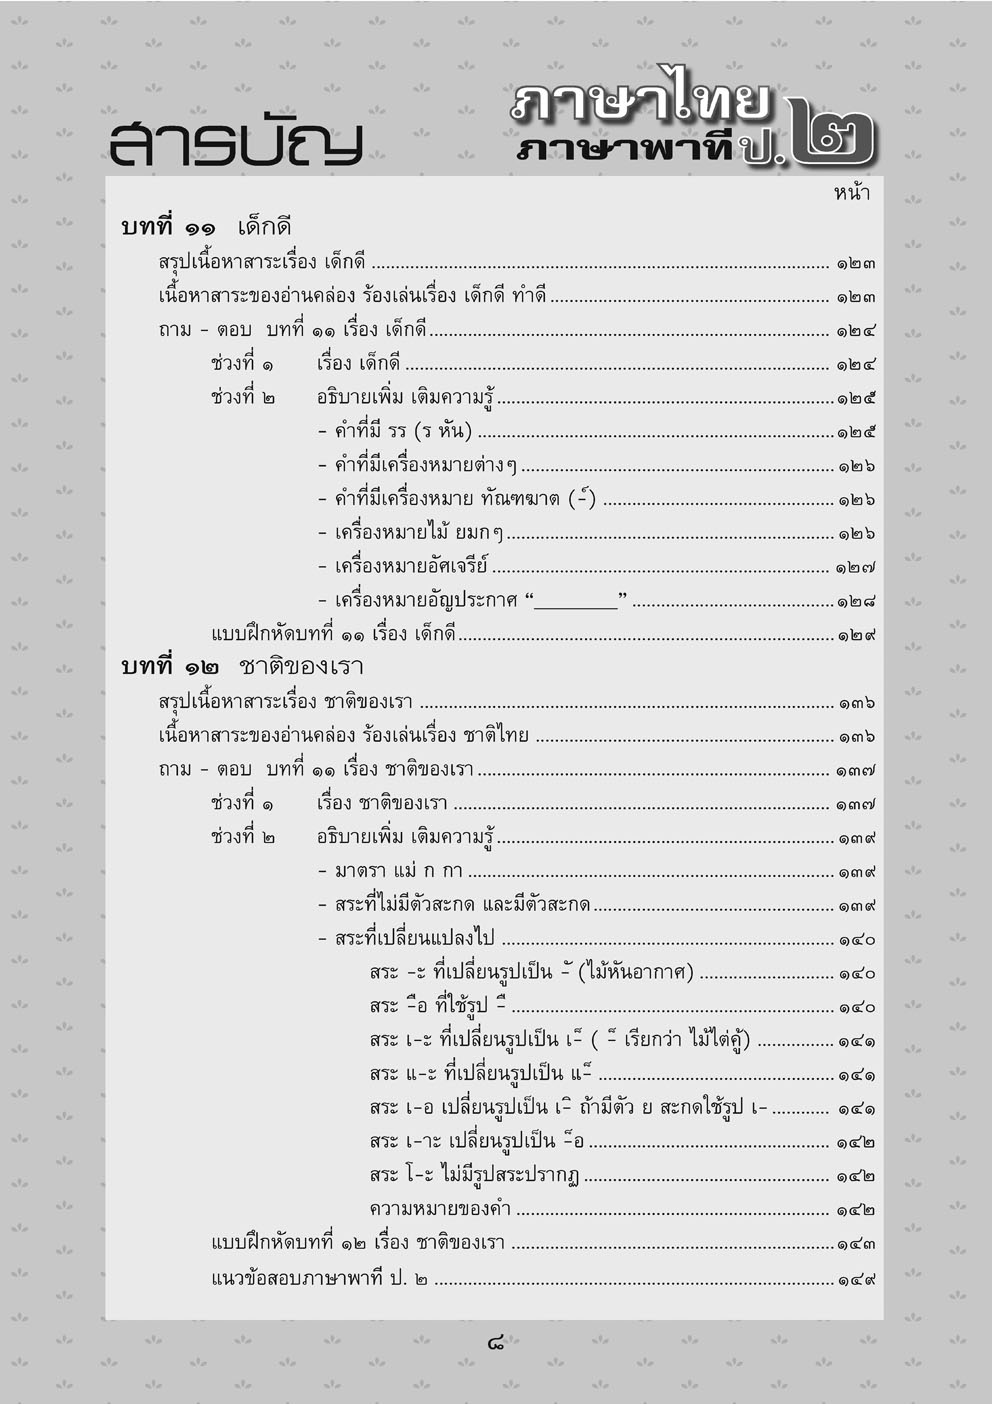 สารบัญ
ภาษาไทย
ภาษาพาที ป.๒
หน้า
บทที่ ๑๑ เด็กดี
สรุปเนื้อหาสาระเรื่อง เด็กดี ........ ๑๒๓
เนื้อหาสาระของอ่านคล่อง ร้องเล่นเรื่อง เด็กดี ทำดี ........ ๑๒๓
ถาม - ตอบ บทที่ ๑๑ เรื่อง เด็กดี ........ ๑๒๔
ช่วงที่ ๑ เรื่อง เด็กดี ........ ๑๒๔
ช่วงที่ ๒ อธิบายเพิ่ม เติมความรู้ ........ ๑๒๕
- คำที่มี รร (ร หัน) ........ ๑๒๕
- คำที่มีเครื่องหมายต่างๆ ........ ๑๒๖
- คำที่มีเครื่องหมาย ทัณฑฆาต (-์) ........ ๑๒๖
- เครื่องหมายไม้ ยมกๆ ........ ๑๒๖
- เครื่องหมายอัศเจรีย์ ........ ๑๒๗
- เครื่องหมายอัญประกาศ “________” ........ ๑๒๘
แบบฝึกหัดบทที่ ๑๑ เรื่อง เด็กดี ........ ๑๒๙
บทที่ ๑๒ ชาติของเรา
สรุปเนื้อหาสาระเรื่อง ชาติของเรา ........ ๑๓๖
เนื้อหาสาระของอ่านคล่อง ร้องเล่นเรื่อง ชาติไทย ........ ๑๓๖
ถาม - ตอบ บทที่ ๑๑ เรื่อง ชาติของเรา ........ ๑๓๗
ช่วงที่ ๑ เรื่อง ชาติของเรา ........ ๑๓๗
ช่วงที่ ๒ อธิบายเพิ่ม เติมความรู้ ........ ๑๓๙
- มาตรา แม่ ก กา ........ ๑๓๙
- สระที่ไม่มีตัวสะกด และมีตัวสะกด ........ ๑๓๙
- สระที่เปลี่ยนแปลงไป ........ ๑๔๐
สระ -ะ ที่เปลี่ยนรูปเป็น -ั (ไม้หันอากาศ) ........ ๑๔๐
สระ -ือ ที่ใช้รูป -ื ........ ๑๔๐
สระ เ-ะ ที่เปลี่ยนรูปเป็น เ-็ ( -็ เรียกว่า ไม้ไต่คู้) ........ ๑๔๑
สระ แ-ะ ที่เปลี่ยนรูปเป็น แ-็ ........ ๑๔๑
สระ เ-อ เปลี่ยนรูปเป็น เ-ิ ถ้ามีตัว ย สะกดใช้รูป เ- ........ ๑๔๑
สระ เ-าะ เปลี่ยนรูปเป็น -็อ ........ ๑๔๒
สระ โ-ะ ไม่มีรูปสระปรากฏ ........ ๑๔๒
ความหมายของคำ ........ ๑๔๒
แบบฝึกหัดบทที่ ๑๒ เรื่อง ชาติของเรา ........ ๑๔๓
แนวข้อสอบภาษาพาที ป. ๒ ........ ๑๔๙
๘